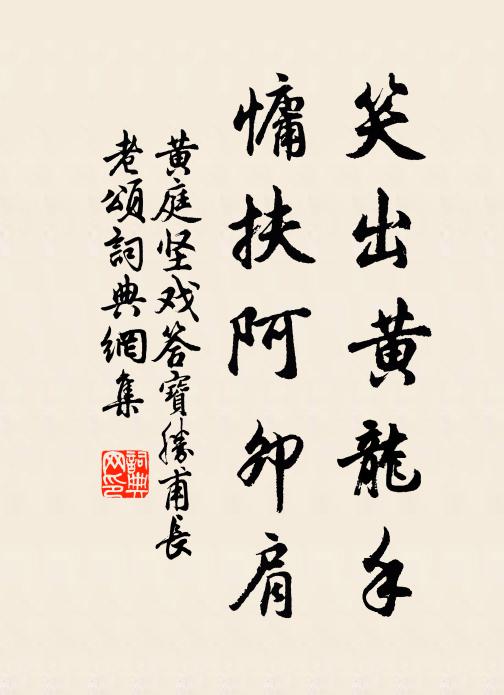 笑出黄龍手
慵扶阿卯肩
黄庭坚戏答寶勝甫長
老頌詞典網集
詞典网印